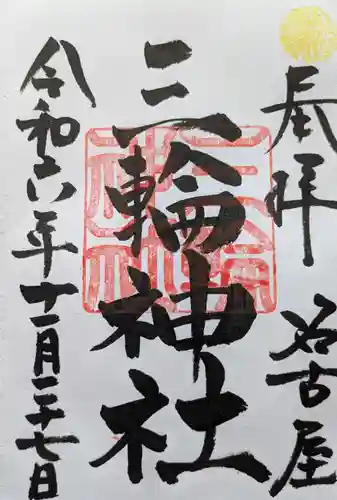 奉拝 名古屋
三輪神社
令和六年十一月二十七日